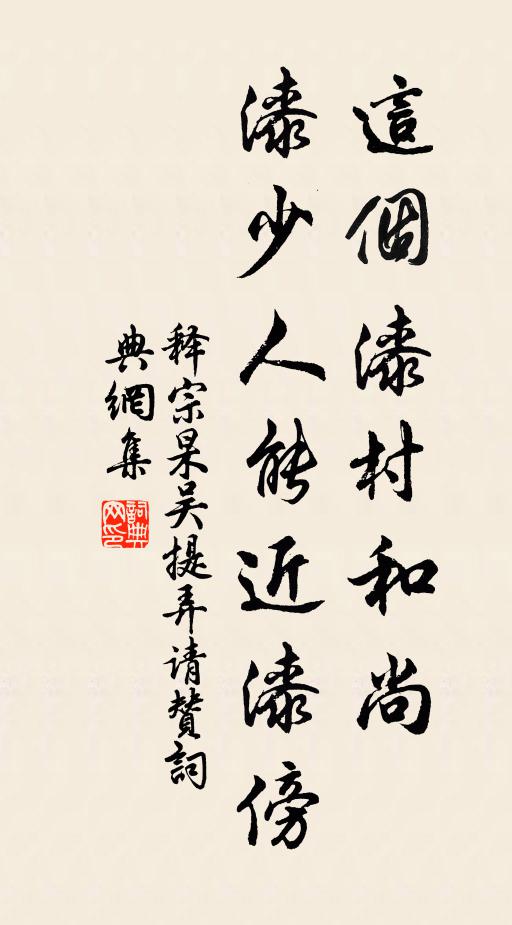 這個漆村和尚
漆少人能近漆傍
释宗杲吴提弄请賛詞
典網集
詞典
网印